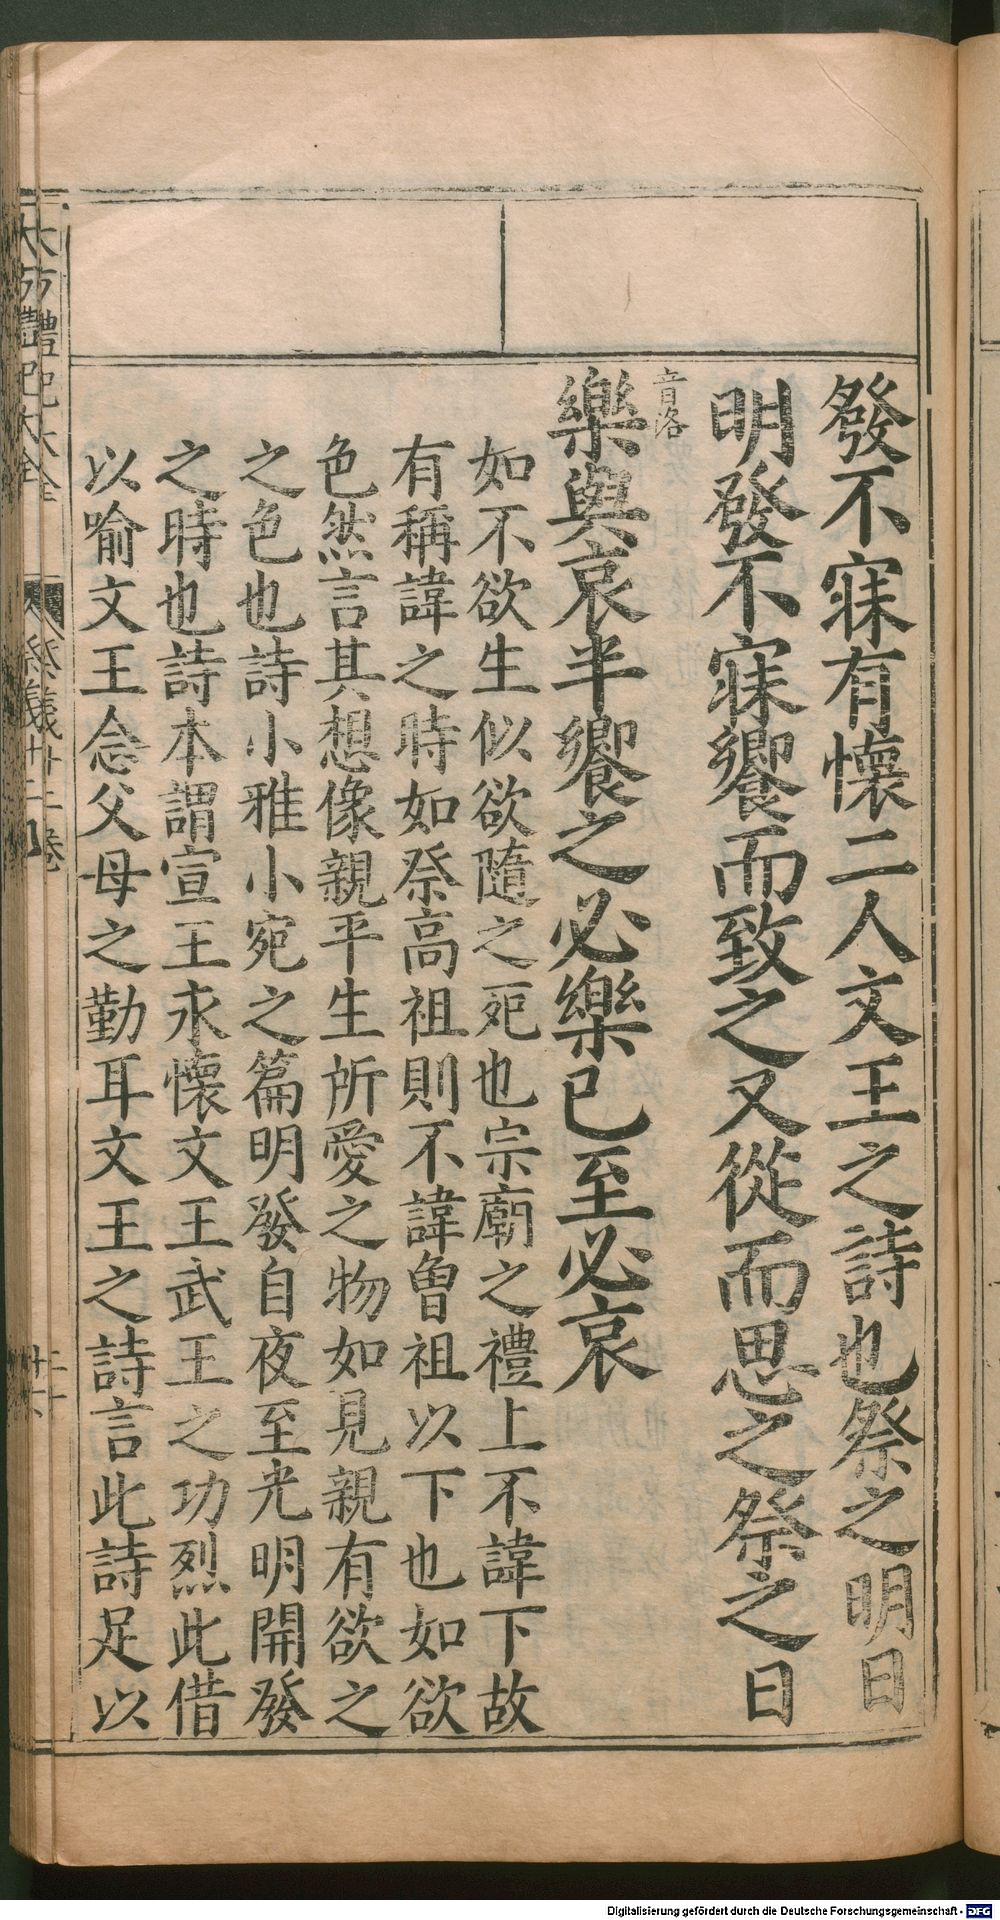 發不寐有懷二人文王之詩也祭之明日
明發不寐饗而致之又從而思之祭之日
音洛
樂與哀半饗之必樂已至必哀
如不欲生似欲隨之死也宗廟之禮上不諱下故
有稱諱之時如祭高祖則不諱曾祖以下也如欲
色然言其想像親平生所愛之物如見親有欲之
之色也詩小雅小宛之篇明發自夜至光明開發
之時也詩本謂宣王永懷文王武王之功烈此借
以喻文王念父母之勤耳文王之詩言此詩足以
大方禮記大全
祭義廿二卷
Digitalisierung gefördert durch die Deutsche Forschungsgemeinschaft - DFG